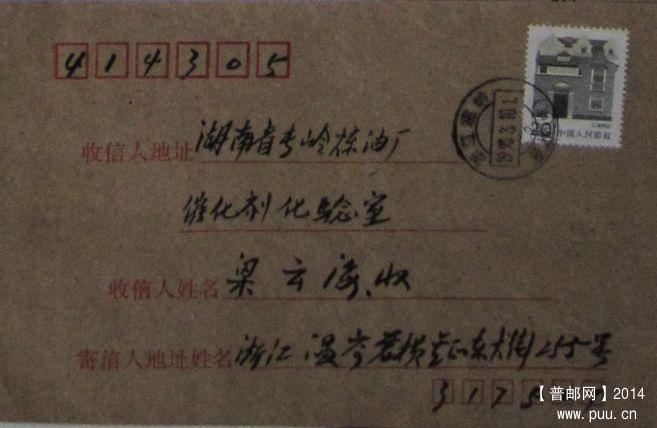 414305
收信人地址 湖南省长岭炼油厂
催化剂化验室
收信人姓名 梁云海 收
寄信人地址姓名 浙江温岑 横 东大街255号
3175
中国人民邮政
20
【普邮网】2014
www.puu.cn